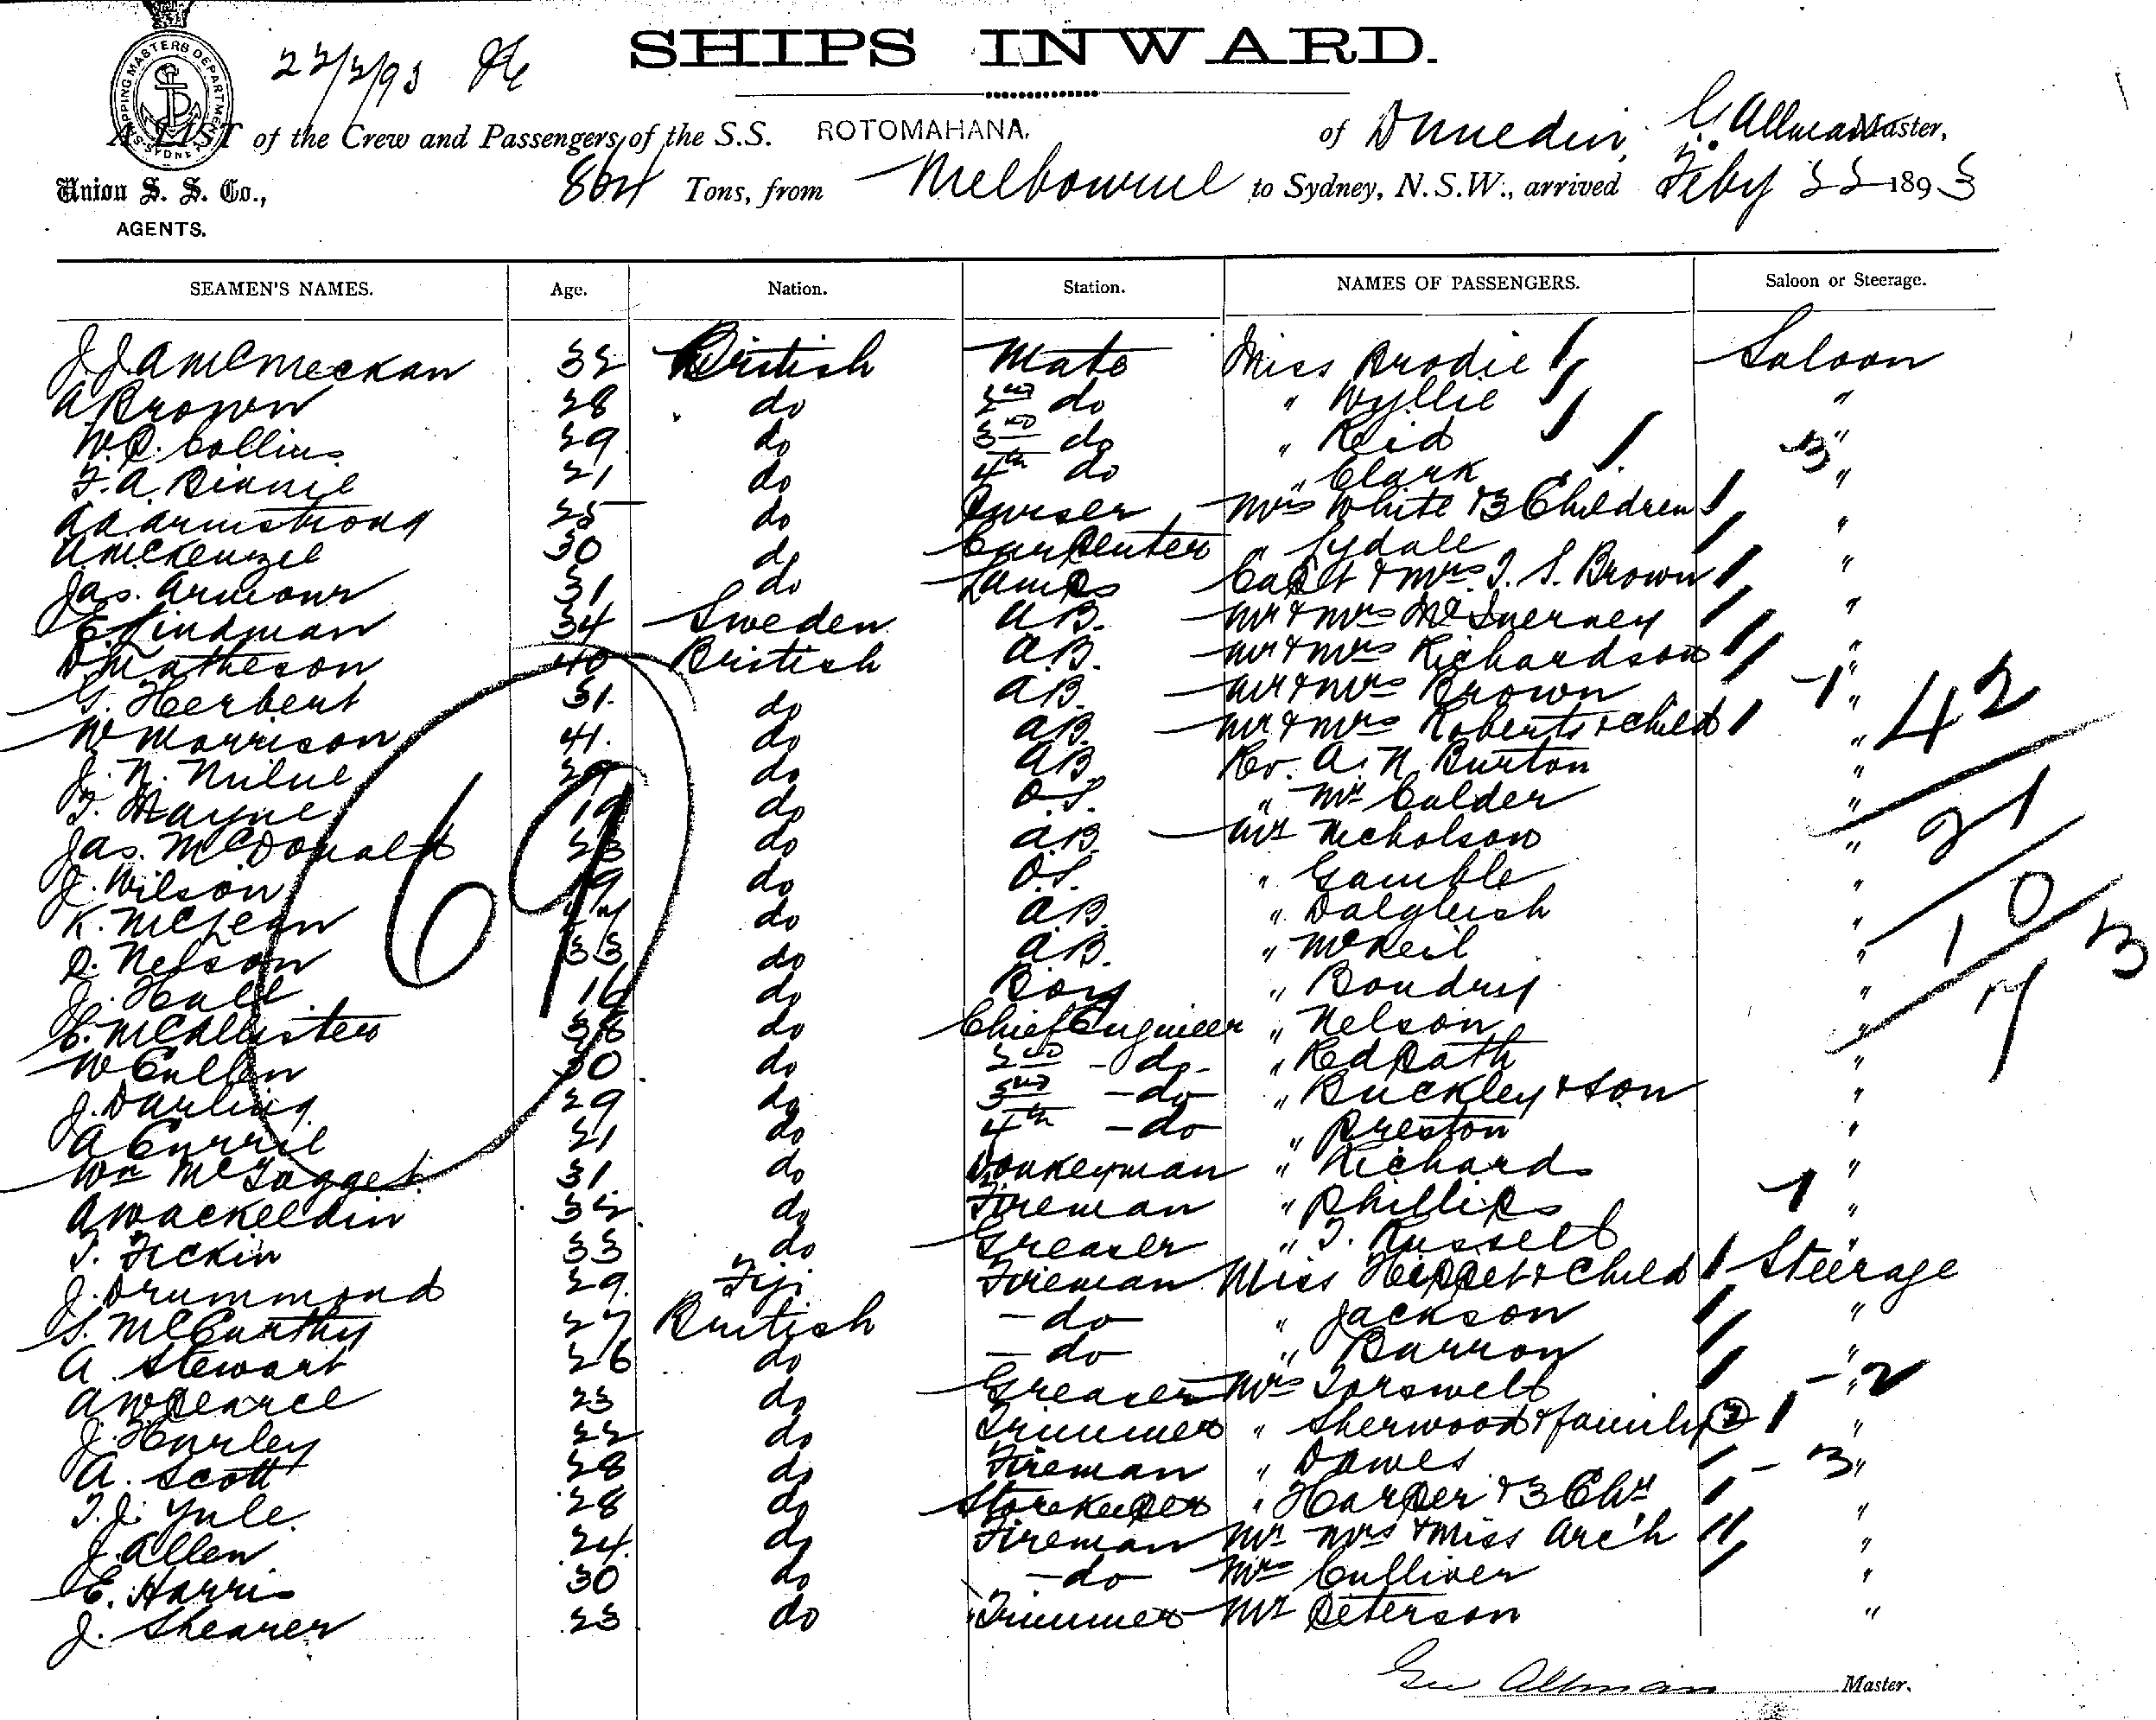 SHIPPING MASTERS DEPARTMENT SYDNEY
22/2/93
SHIPS INWARD.
A LIST of the Crew and Passengers of the S.S. ROTOMAHANA, of Dunedin, G. Allman Master,
Union S. S. Co., AGENTS. 864 Tons, from Melbourne to Sydney, N.S.W., arrived Feby 22 1893
SEAMEN'S NAMES. Age. Nation. Station. NAMES OF PASSENGERS. Saloon or Steerage.
J J A McMeckan 32 British Mate Miss Brodie Saloon
A Brown 28 do 2nd do " Wyllie "
W.C. Collins 29 do 3rd do " Reid 3 "
F. A. Binnie 21 do 4th do " Clark "
A A Armstrong 25 do Purser Mrs White & 3 Children "
A McKenzie 30 do Carpenter " Lydale "
Jas. Armour 31 do Lamps Capt & Mrs T. S. Brown "
E Lindman 34 Sweden A.B. Mr & Mrs McInerney "
D Matheson 40 British A.B. Mr & Mrs Richardson "
G. Herbert 31. do A.B. Mr & Mrs Brown - 1 " 42
W Morrison 41. do A.B. Mr & Mrs Roberts & child "
J. N. Milne 29 do A.B. Rev. A. N. Burton "
T. Mayne 19 do O.S. " Mr Calder " 21
Jas. McDonald 23 do A.B. Mr Nicholson "
J. Wilson 19 do O.S. " Gamble "
K. McLean 27 do A.B. " Dalgleish " 10 3
D. Nelson 33 do A.B. " McNeil "
J. Hall 16 do Boy " Boudry " 7
C. McAllister 38 do Chief Engineer " Nelson "
W Cullen 30 do 2nd - do - " Redpath "
J. Darling 29 do 3rd - do " Buckley & Son "
A Currie 21 do 4th - do " Preston "
Wm McTagget 31 do Donkeyman " Richards "
A Mackeldin 32 do Fireman " Phillips - 1 "
T. Fickin 33 do Greaser " T. Russell "
J. Drummond 29. Fiji Fireman Miss Heppet & Child Steerage
S. McCarthy 27 British - do " Jackson "
A. Stewart 26 do - do " Barron "
A W Pearce 23 do Greaser Mrs Torswell - 2 "
J. Hurley 22 do Trimmer " Sherwood & family 2 "
A. Scott 28 do Fireman " Dawes - 3 "
T. J. Yule 28 do Storekeeper " Harper & 3 Chn "
J. Allen 24. do Fireman Mr Mrs & Miss Arch "
E. Harris 30 do - do Mrs Culliver "
J. Shearer 23 do Trimmer Mr Peterson "
69
Geo Allman Master.